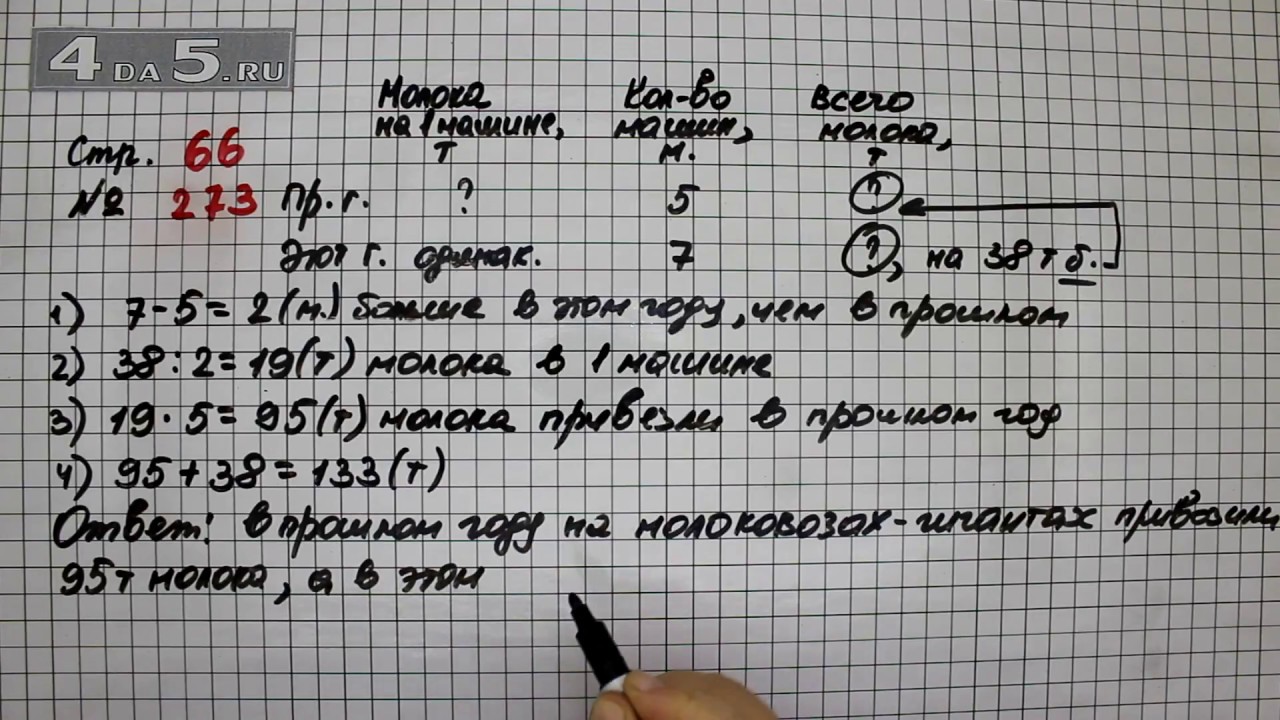 4 DA 5.RU
Молока Кол-во всего
на 1 машине, машин, молока,
Стр. 66 т м. т
№ 273 Пр. г. ? 5 ?
Этот г. одинак. 7 ?, на 38 т б.
1) 7-5=2(м.) больше в этом году, чем в прошлом
2) 38:2=19(т) молока в 1 машине
3) 19·5=95(т) молока привезли в прошлом год
4) 95+38=133(т)
Ответ: в прошлом году на молоковозах-гигантах привозили
95т молока, а в этом